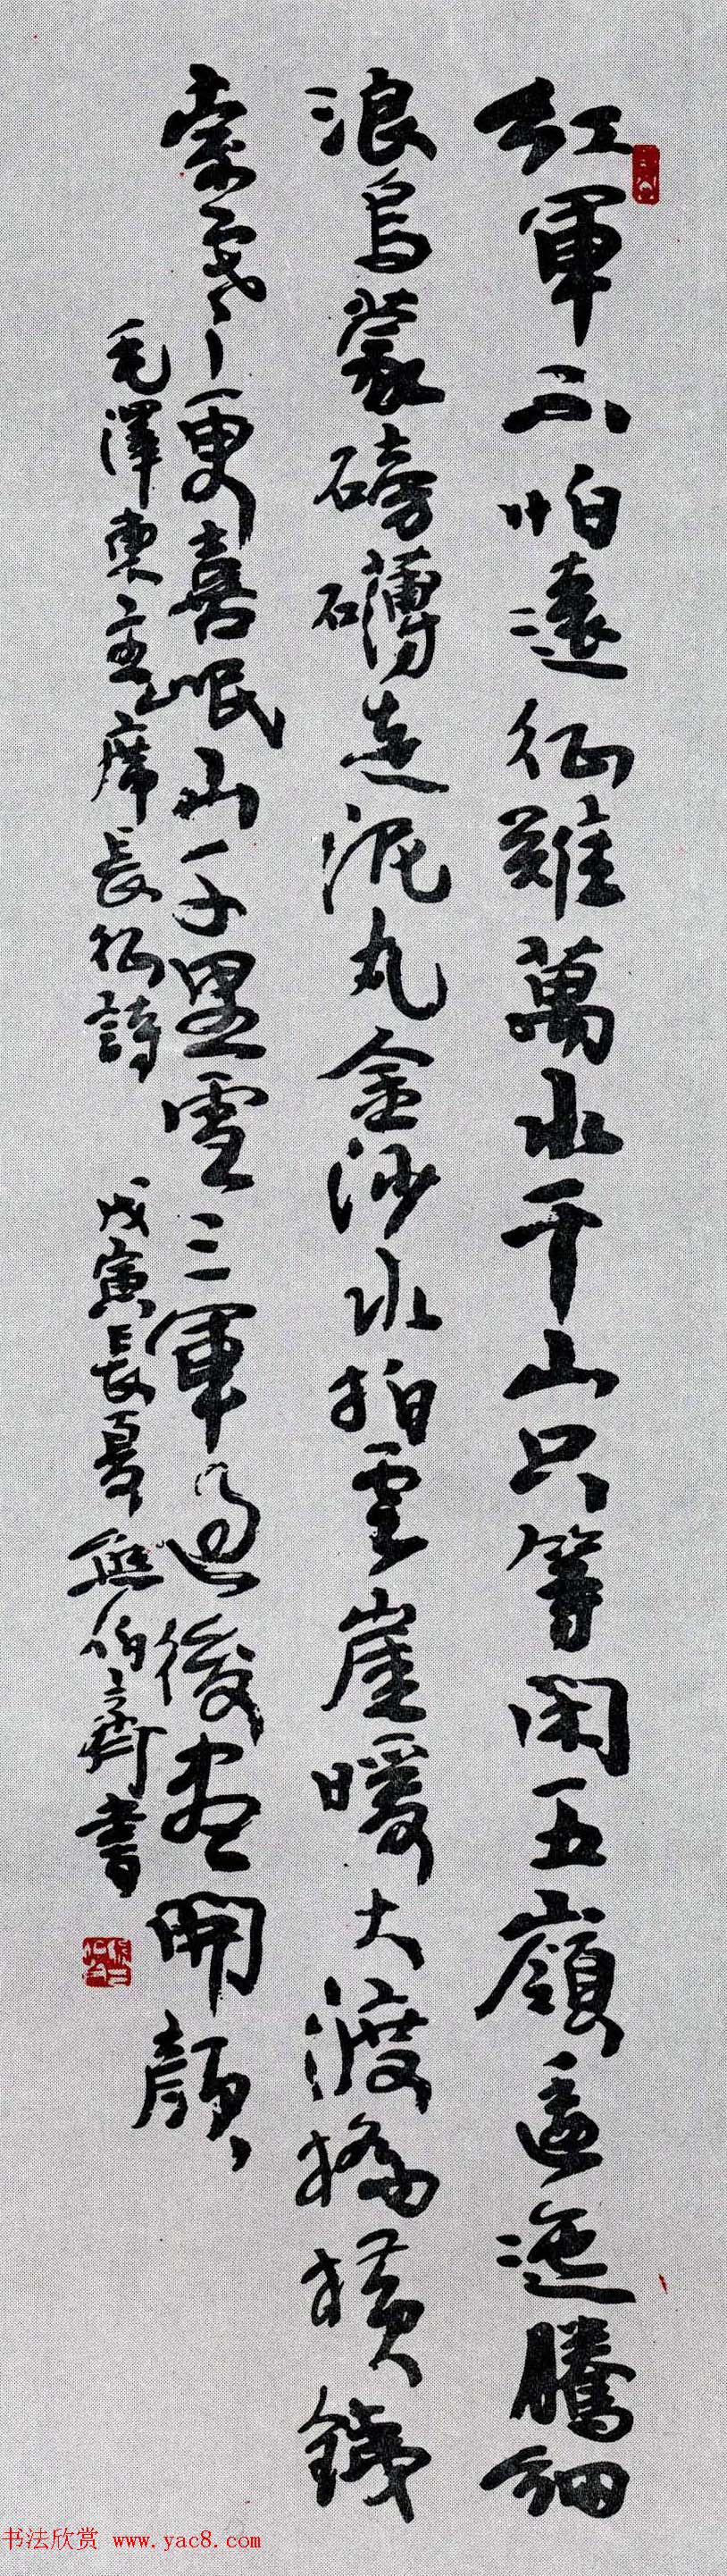 紅軍不怕遠征難萬水千山只等闲五嶺逶迤騰細
浪烏蒙磅礴走泥丸金沙水拍雲崖暖大渡橋橫鐵
索寒更喜岷山千里雪三軍過後盡開顏
毛澤東主席長征詩 戊寅長夏熊伯齊書
书法欣赏 www.yac8.com